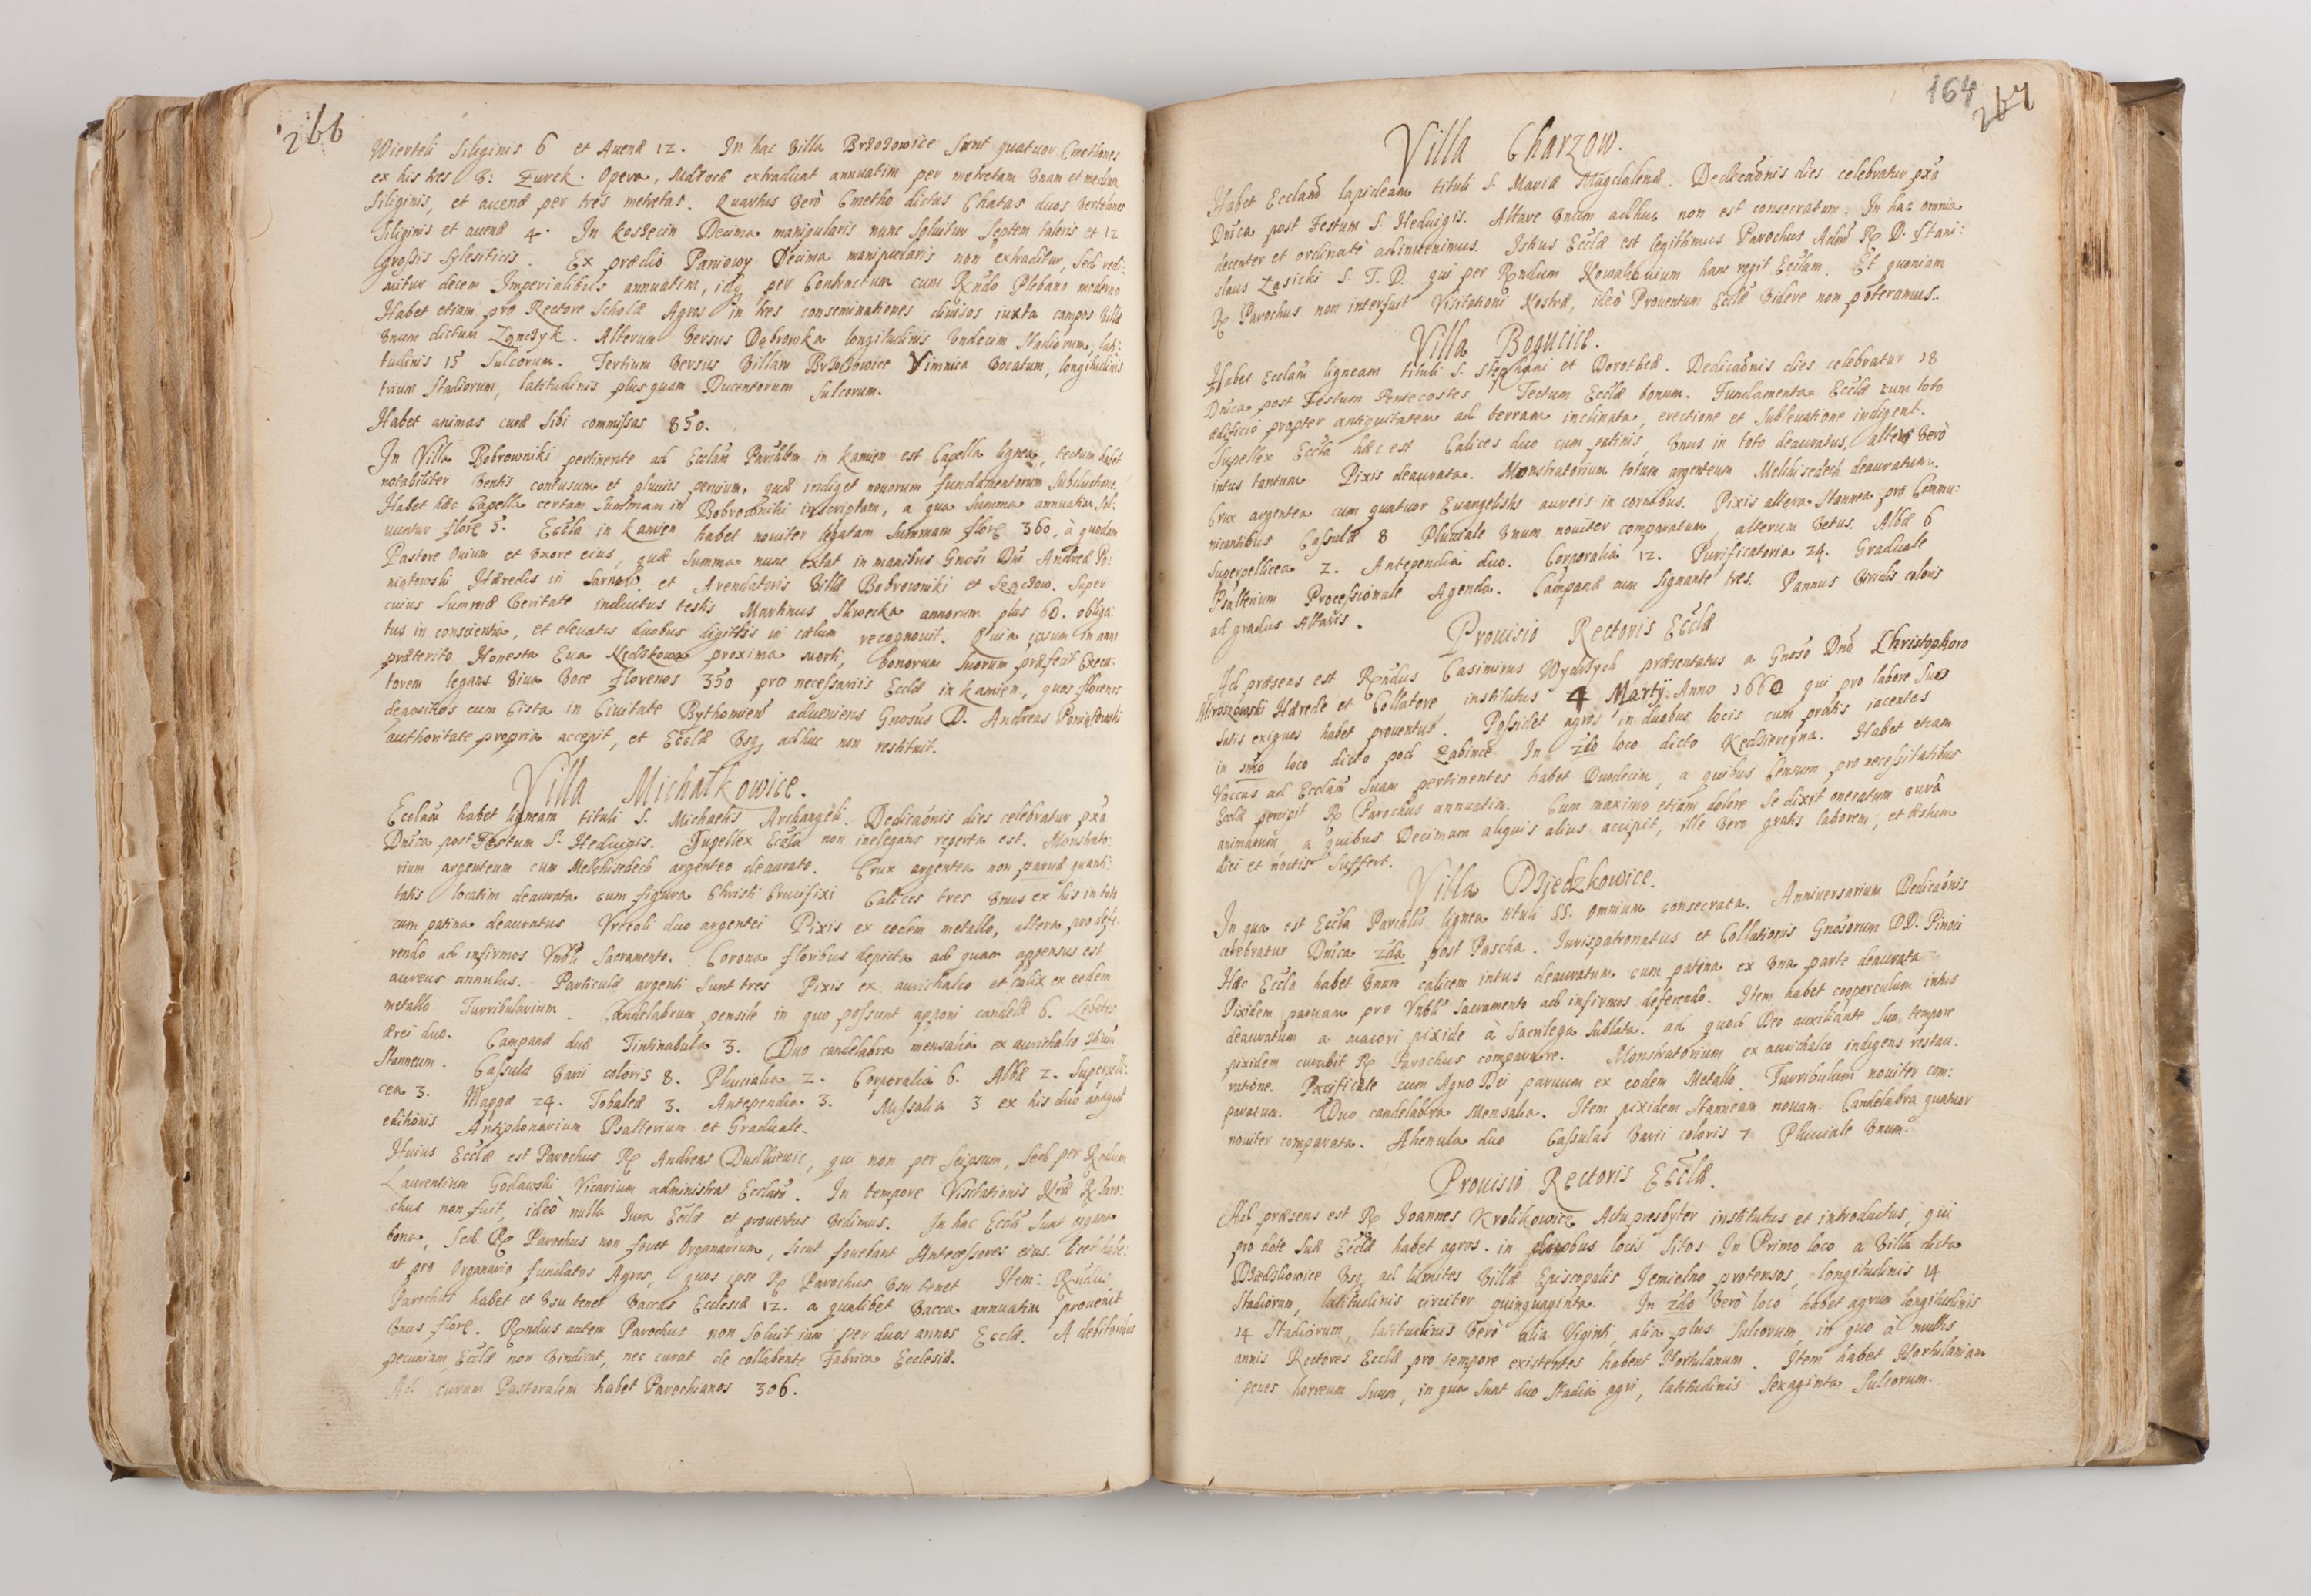 266
Wierteli Siliginis 6 et Auenæ 12. In hac Villa Brzozowice sunt quatuor Cmethones
ex his tres v: Zurek. Opera, Mdroch extraduat annuatim per metretam Vnam et mediam
Siliginis, et auenæ per tres metretas. Quartus Verò Cmetho dictus Chatas duos Vertelones
Siliginis et auenæ 4. In kozdecin Decima manipularis nunc soluitur septem taleris et 12
grossis Slesiticis. Ex prædio Paniowy Decima manipularis non extraditur, sed redi:
mitur decem Imperialibus annuatim, idq per Contractum cum Rndo Plebano moderno
Habet etiam pro Rectore Scholæ Agros in tres conseminationes diuisos iuxta campos Villæ
Vnum dictum Zgnczyk. Alterum Versus Dąbrowka longitudinis Vndecim stadiorum, lati:
tudinis 15 sulcorum. Tertium Versus Villam Brzozowice Vimnica Vocatum, longitudinis
trium stadiorum, latitudinis plus quam Ducentorum sulcorum.
Habet animas curæ sibi commissas 850.
In Villa Bobrowniki pertinente ad Ecclam Parchlem in kamien est Capella lignea, tectum habet
notabiliter Ventis contusum et pluuiis peruium, quæ indiget nouorum fundamentorum subductione.
Habet hæc Capella certam summam in Bobrowniki inscriptam, a qua summa annuatim sol:
uuntur flore 5. Eccla in kamien habet nouiter legatam summam flore 360, à quodam
Pastore Ouium et Vxore eius, quæ summa nunc extat in manibus Gnosi Dni Andreæ Po:
niatowski Hæredis in Sarnow et Arendatoris Villæ Bobrowniki et Sączow. Super
cuius summæ Veritate inductus testis Martinus Skwecka annorum plus 60. obliga:
tus in conscientia, et eleuatis duobus digitis in cœlum recognouit. Quia ipsum in anno
præterito Honesta Eua Kedzkowa proxima morti, bonorum suorum præfecit Execu:
torem legans Viua Voce florenos 350 pro necessariis Ecclæ in kamien, quos florenos
depositos cum Cista in Ciuitate Bythomien adueniens Gnosus D. Andreas Poniątowski
authoritate propria accepit, et Ecclæ Vsq adhuc non restituit.
Villa Michałkowice.
Ecclam habet ligneam tituli S. Michaelis Archangeli. Dedicaonis dies celebratur pxa
Dnica post Festum S. Heduigis. Supellex Eccla non inelegans reperta est. Monstrato:
rium argenteum cum Melchisedech argenteo deaurato. Crux argentea non paruæ quanti:
tatis locatim deaurata cum figura Christi Crucifixi Calices tres Vnus ex his in toto
cum patina deauratus Vrceoli duo argentei Pixis ex eodem metallo, altera pro defe:
rendo ad infirmos Vnbli Sacramento. Corona floribus depicta ad quam appensus est
aureus annulus. Particulæ argenti sunt tres Pixis ex aurichalco et calix ex eodem
metallo. Turribularium. Candelabrum pensile in quo possunt apponi candelæ 6. Lebetes
ærei duo. Campanæ duæ Tintinabula 3. Duo candelabra mensalia ex aurichalco Vnum
stanneum. Cassulæ Varii coloris 8. Pluuialia 2. Corporalia 6. Albæ 2. Superpelli:
cea 3. Mappæ 24. Tobaleæ 3. Antependia 3. Missalia 3 ex his duo antiquæ
editionis Antiphonarium Psalterium et Graduale.
Huius Ecclæ est Parochus R Andreas Dudkiewic, qui non per seipsum, sed per Rndum
Laurentium Godawski Vicarium administrat Ecclam. In tempore Visitationis Nræ R Paro:
chus non fuit, ideò nulla Iura Ecclæ et prouentus Vidimus. In hac Eccla sunt organa
bona, sed R Parochus non fouet Organarium, sicut fouebant Antecessores eius. licet habe:
at pro Organario fundatos Agros, quos ipse R Parochus Vsu tenet Item: Rndus
Parochus habet et Vsu tenet Vaccas Ecclesiæ 12. a qualibet Vacca annuatim prouenit
Vnus flore. Rndus autem Parochus non soluit iam per duos annos Ecclæ. A debitoribus
pecuniam Ecclæ non Vindicat, nec curat de collabente Fabrica Ecclesiæ.
Ad curam Pastoralem habet Parochianos 306.
164
267
Villa Charzow.
Habet Ecclam lapideam tituli S. Mariæ Magdalenæ. Dedicaonis dies celebratur pxa
Dnica post Festum S. Heduigis. Altare Vnum adhuc non est consecratum. In hac omnia
decenter et ordinatè adinuenimus. Istius Ecclæ est legitimus Parochus Adm R D. Stani:
slaus Zasicki S. T. D. qui per Rndum Nowakouium hanc regit Ecclam. Et quoniam
R Parochus non interfuit Visitationi Nostræ, ideò Prouentum Ecclæ Videre non poteramus.
Villa Bogucice.
Habet Ecclam ligneam tituli S. Stephani et Dorotheæ. Dedicaonis dies celebratur 18
Dnica post Festum Pentecostes Tectum Ecclæ bonum. Fundamenta Ecclæ cum toto
ædificio propter antiquitatem ad terram inclinata, erectione et subleuatione indigent.
Supellex Eccla hæc est Calices duo cum patinis, Vnus in toto deauratus, alter Verò
intus tantum Pixis deaurata. Monstratorium totum argenteum Melchisedech deauratum.
Crux argentea cum quatuor Euangelistis aureis in cornibus. Pixis altera stannea pro Commu:
nicantibus Cassulæ 8 Pluuiale Vnum nouiter comparatum, alterum Vetus. Albæ 6
Superpellicea 2. Antependia duo. Corporalia 12. Purificatoria 24. Graduale
Psalterium Processionale Agenda. Campanæ cum signante tres. Pannus Viridis coloris
ad gradus Altaris.
Prouisio Rectoris Ecclæ
Ad præsens est Rndus Casimirus Wydrzych præsentatus a Gnoso Dno Christophoro
Mieroszowski Hærede et Collatore institutus 4 Martij Anno 1660 qui pro labore suo
satis exiguos habet prouentus. Possidet agros in duobus locis cum pratis iacentes
in imo loco dicto pod Zabince In 2do loco dicto Kędzierzyna. Habet etiam
Vaccas ad Ecclam suam pertinentes habet Duodecim, a quibus Censum pro necessitatibus
Ecclæ percipit R Parochus annuatim. Cum maximo etiam dolore se dixit oneratum curâ
animarum, a quibus Decimam aliquis alius accipit, ille Vero gratis laborem, et æstum
diei et noctis suffert.
Villa Dziedzkowice.
In qua est Eccla Parchlis lignea tituli SS. Omnium consecrata. Anniuersarium Dedicaonis
celebratur Dnica 2da post Pascha. Iurispatronatus et Collationis Gnosorum DD. Pinoci
Hæc Eccla habet Vnum calicem intus deauratum cum patina ex Vna parte deaurata
Pixidem paruam pro Vnbli Sacramento ad infirmos deferendo. Item habet cooperculum intus
deauratum a maiori pixide à Sacrilega sublata. ad quod Deo auxiliante suo tempore
pixidem curabit R Parochus comparare. Monstratorium ex aurichalco indigens restau:
ratione. Pacificale cum Agno Dei paruum ex eodem Metallo. Turribulum nouiter com:
paratum. Duo candelabra Mensalia. Item pixidem stanneam nouam. Candelabra quatuor
nouiter comparata. Ahenula duo Cassulas Varii coloris 7 Pluuiale Vnum.
Prouisio Rectoris Ecclæ.
Ad præsens est R Ioannes Krolikowicz Actu presbyter institutus et introductus, qui
pro dote suæ Ecclæ habet agros. in locis sitos In Primo loco a Villa dicta
Dziedzkowice Vsq ad limites Villæ Episcopalis Iemielno protensos, longitudinis 14
stadiorum, latitudinis circiter quinquaginta. In 2do Verò loco habet agrum longitudinis
14 stadiorum, latitudinis Verò alia Viginti, alia plus sulcorum, in quo à multis
annis Rectores Ecclæ pro tempore existentes habent Hortulanum. Item habet Hortulaniam
penes horreum suum, in qua sunt duo stadia agri, latitudinis sexaginta sulcorum.